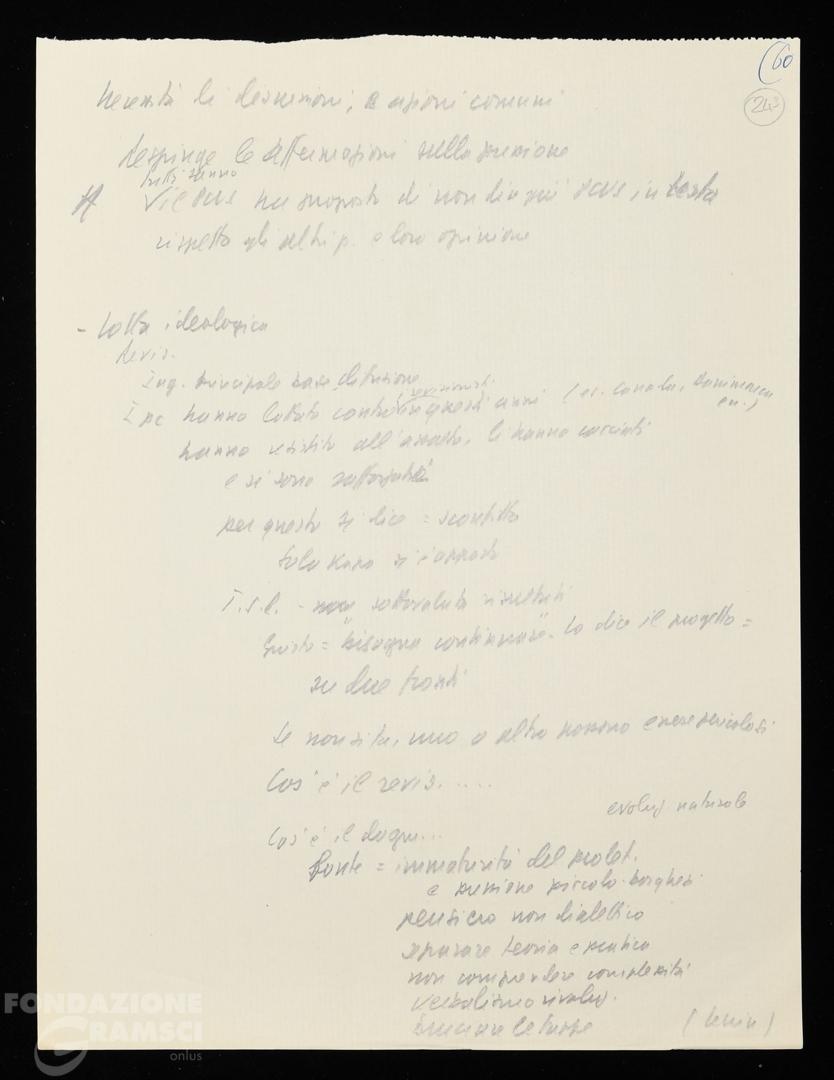 60
243
Necessità di discussioni, e azioni comuni
Respinge le affermazioni sulla pressione
tutti sanno
il PCUS ha proposto di non dir più PCUS in testa
rispetto gli altri p. e loro opinione
- Lotta ideologica
Revis.
Ing. principale base diffusione
revisionisti
I pc hanno lottato contro in questi anni (es. Canada, Danimarca
ecc.)
hanno resistito all'assalto, li hanno cacciati
e si sono rafforzati
per questo si dice = sconfitto
T.S.C. - non sottovaluta risultati
Giusto = "bisogna continuare". Lo dice il progetto =
su due fronti
Se non si fa, uno o altro possono essere pericolosi
Cos'è il revis.....
evoluz naturale
Cos'è il dogm...
Fonte = immaturità del prolet.
e pressione piccolo-borghesi
pensiero non dialettico
separare teoria e pratica
non comprendere complessità
verbalismo rivoluz.
bruciare le tappe (Lenin)
FONDAZIONE
GRAMSCI
onlus